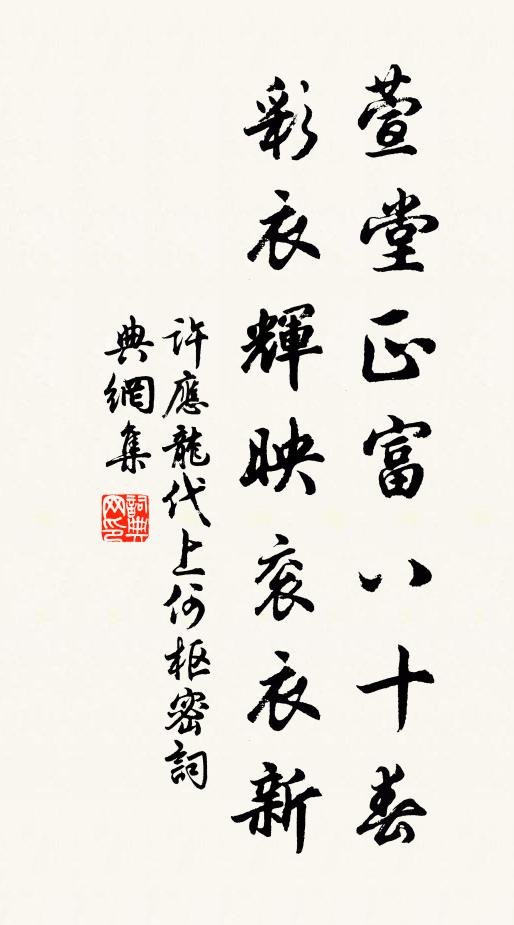 萱堂正富八十春
彩衣輝映袞衣新
許應龍代上何枢密詞
典網集
詞典
网印